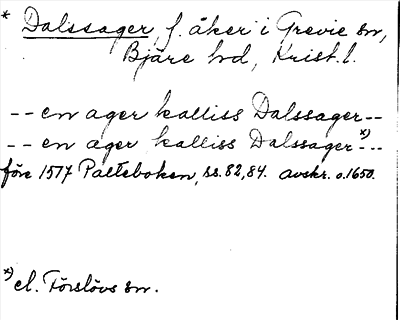 * Dalssager, f. åker i Grevie sn,
Bjäre hd, Krist. l.
-- en ager kalliss Dalssager --
-- en ager kalliss Dalssager *) --
före 1517 Palteboken, ss. 82, 84. avskr. o. 1650.
*) el. Förslövs sn.